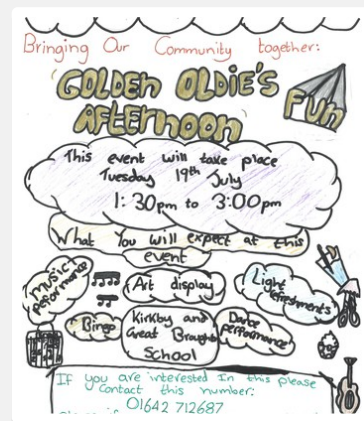 Bringing Our Community together:
'GOLDEN OLDIE'S
FUN
AFTERNOON'
This event will take place
Tuesday 19th July
1:30pm to 3:00pm
What You will expect at this
event
Music
Peformance
Art display
Light
refreshments
Bingo
Kirkby and
Great Brought
School
Dance
performance
If you are interested In this please
Contact this number:
01642 712687